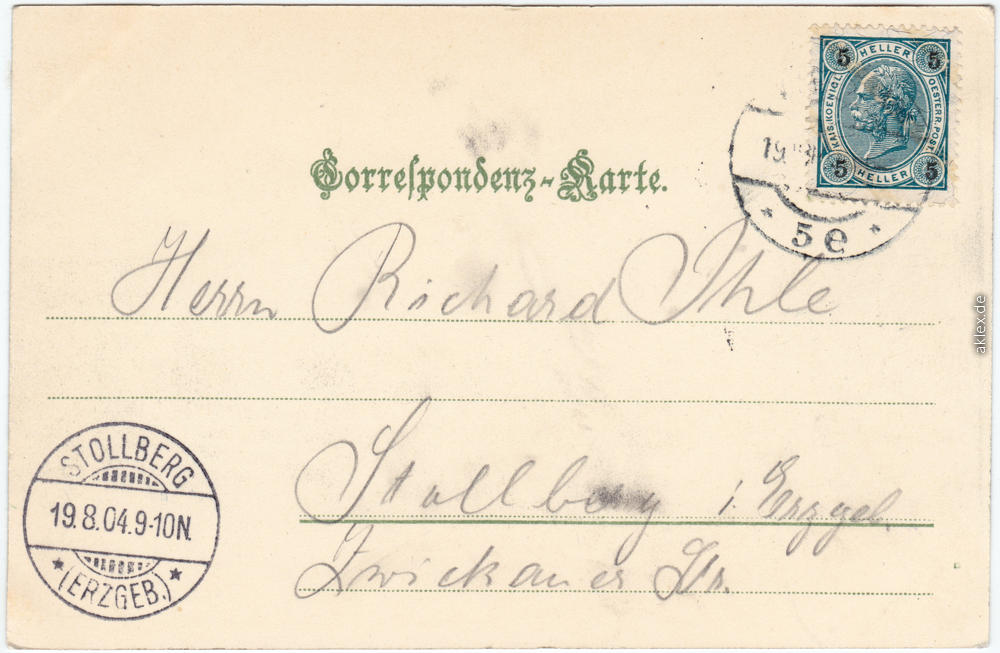 5 HELLER 5
KAIS. KOENIGL. OESTERR. POST.
5 HELLER 5
19.
* 5e *
Correspondenz-Karte.
Herrn Richard Ihle
Stollberg i. Erzgeb.
Zwickauer Str.
STOLLBERG
19.8.04.9-10N.
* (ERZGEB.) *
aklex.de